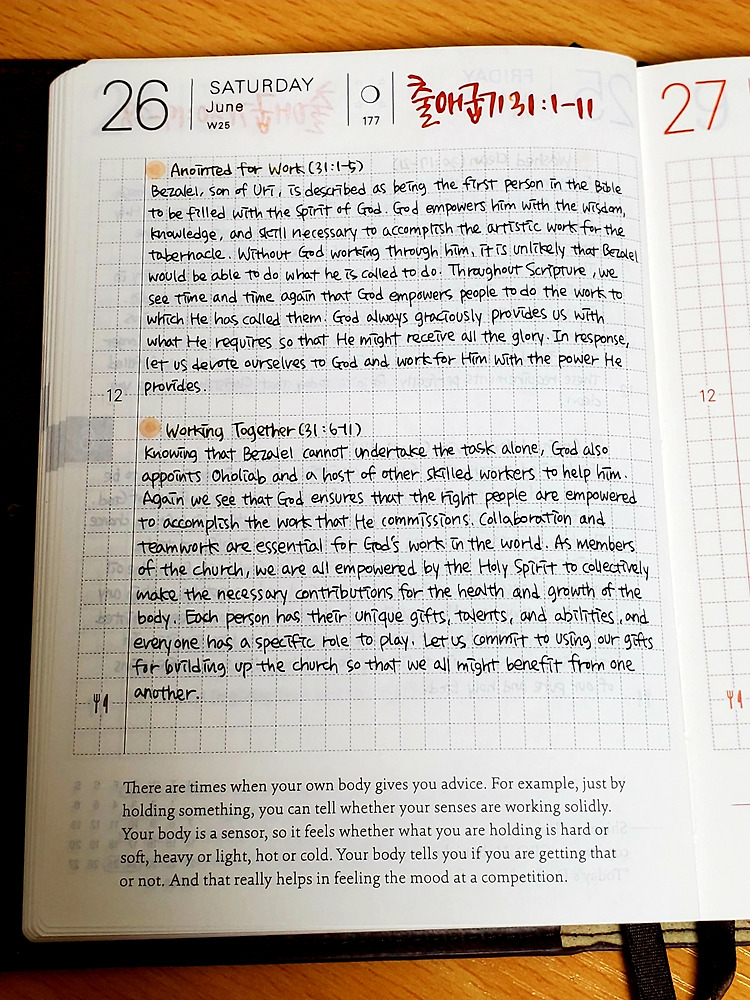 26
SATURDAY
June
W25
177
출애굽기 31:1-11
27
Anointed for Work (31:1-5)
Bezalel, son of Uri, is described as being the first person in the Bible
to be filled with the Spirit of God. God empowers him with the wisdom,
knowledge, and skill necessary to accomplish the artistic work for the
tabernacle. Without God working through him, it is unlikely that Bezalel
would be able to do what he is called to do. Throughout Scripture, we
see time and time again that God empowers people to do the work to
which He has called them. God always graciously provides us with
what He requires so that He might receive all the glory. In response,
let us devote ourselves to God and work for Him with the power He
provides.
12
12
Working Together (31:6-11)
Knowing that Bezalel cannot undertake the task alone, God also
appoints Oholiab and a host of other skilled workers to help him.
Again we see that God ensures that the right people are empowered
to accomplish the work that He commissions. Collaboration and
teamwork are essential for God's work in the world. As members
of the church, we are all empowered by the Holy Spirit to collectively
make the necessary contributions for the health and growth of the
body. Each person has their unique gifts, talents, and abilities, and
everyone has a specific role to play. Let us commit to using our gifts
for building up the church so that we all might benefit from one
another.
There are times when your own body gives you advice. For example, just by
holding something, you can tell whether your senses are working solidly.
Your body is a sensor, so it feels whether what you are holding is hard or
soft, heavy or light, hot or cold. Your body tells you if you are getting that
or not. And that really helps in feeling the mood at a competition.